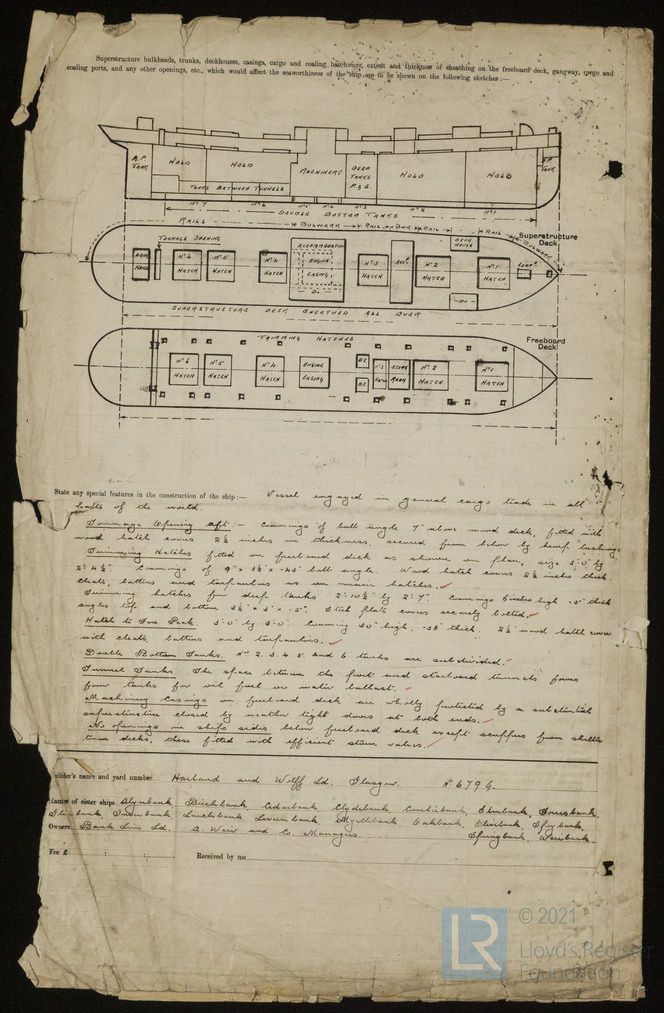 Superstructure bulkheads, trunks, deckhouses, casings, cargo and coaling hatchways, extent and thickness of sheathing on the freeboard deck, gangway, cargo and
coaling ports, and any other openings, etc., which would affect the seaworthiness of the ship are to be shewn on the following sketches:—
A.P. TANK
HOLD
HOLD
MACHINERY
DEEP TANKS P & S
HOLD
HOLD
F.P. TANK
TANKS BETWEEN TUNNELS
DOUBLE BOTTOM TANKS
RAILS
BULWARK
RAIL
RAIL
BULWARK
TONNAGE OPENING
Superstructure Deck
DECK HOUSE
Nº 6 HATCH
Nº 5 HATCH
Nº 4 HATCH
ACCOMMODATION
ENGINE CASING
Do.
Nº 3 HATCH
Nº 2 HATCH
Nº 1 HATCH
Do.
SUPERSTRUCTURE DECK SHEATHED ALL OVER
TRIMMING HATCHES
Freeboard Deck
Nº 6 HATCH
Nº 5 HATCH
Nº 4 HATCH
ENGINE CASING
Nº 2 HATCH
Nº 1 HATCH
State any special features in the construction of the ship:— Vessel engaged in general cargo trade in all
parts of the world.
Tonnage Opening aft:— Coamings of bulb angle 9" above wood deck, fitted with
wood hatch covers 2½ inches in thickness, secured from below by hemp lashings
Trimming Hatches fitted on freeboard deck as shown on plan, size 3'·0" by
2'·4½". Coamings of bulb angle. Wood hatch covers 2½ inches thick,
cleats, battens and tarpaulins as on main hatches.
Trimming hatches for deep tanks 2'·10½" by 2'·7". Coamings 6 inches high ·5" thick
angles top and bottom Steel plate covers securely bolted.
Hatch to Fore Peak. 3'·0" by 3'·0". Coaming 30" high. ·38 thick. 2½" wood hatch cover
with cleats, battens and tarpaulins.
Double Bottom Tanks. Nº 2. 3. 4. 5. and 6 tanks are subdivided.
Tunnel Tanks. The space between the port and starboard tunnels forms
four tanks for oil fuel or water ballast.
Machinery Casings on freeboard deck are wholly protected by a substantial
superstructure closed by weather tight doors at both ends.
No openings in ships sides below freeboard deck except scuppers from shelter
tween decks, these fitted with efficient storm valves.
Builder's name and yard number Harland and Wolff Ld. Glasgow. Nº 679G.
Names of sister ships Alynbank, Birchbank, Cedarbank, Clydebank, Comliebank, Elmbank, Forresbank,
Larchbank, Levernbank, Myrtlebank, Oakbank, Olivebank, Speybank,
Owners Bank Line Ld. A. Weir and Co. Managers. Springbank, Weirbank.
Fee £ : :
Received by me
LR
© 2021
Lloyd's Register
Foundation